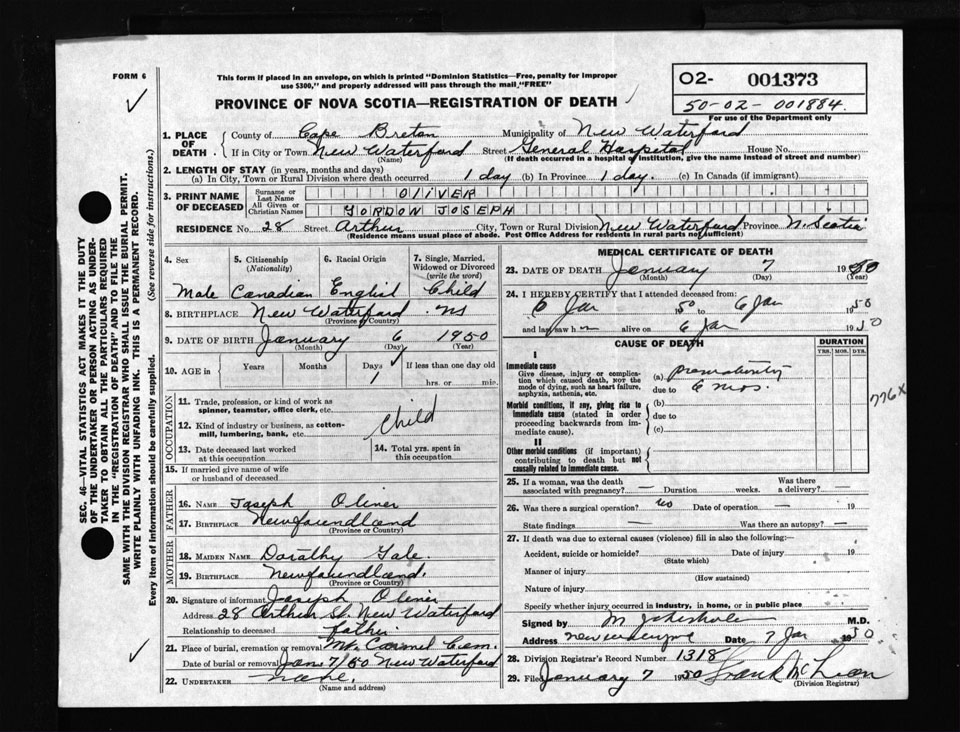 FORM 6
This form if placed in an envelope, on which is printed "Dominion Statistics—Free, penalty for improper
use $300," and properly addressed will pass through the mail, "FREE"
PROVINCE OF NOVA SCOTIA—REGISTRATION OF DEATH
02- 001373
50-02-001884
For use of the Department only
1. PLACE OF DEATH
County of Cape Breton Municipality of New Waterford
If in City or Town New Waterford Street General Hospital House No.
(Name) (If death occurred in a hospital or institution, give the name instead of street and number)
2. LENGTH OF STAY (in years, months and days)
(a) In City, Town or Rural Division where death occurred 1 day (b) In Province 1 day. (c) In Canada (if immigrant)
3. PRINT NAME OF DECEASED
Surname or Last Name OLIVER
All Given or Christian Names GORDON JOSEPH
RESIDENCE No. 28 Street Arthur City, Town or Rural Division New Waterford Province N. Scotia
(Residence means usual place of abode. Post Office Address for residents in rural parts not sufficient)
4. Sex Male
5. Citizenship (Nationality) Canadian
6. Racial Origin English
7. Single, Married, Widowed or Divorced (write the word) Child
8. BIRTHPLACE New Waterford NS
(Province or Country)
9. DATE OF BIRTH January 6 1950
(Month) (Day) (Year)
10. AGE in Years Months Days 1 If less than one day old
hrs. or min.
OCCUPATION
11. Trade, profession, or kind of work as
spinner, teamster, office clerk, etc.
12. Kind of industry or business, as cotton-
mill, lumbering, bank, etc.
Child
13. Date deceased last worked
at this occupation
14. Total yrs. spent in
this occupation
15. If married give name of wife
or husband of deceased
FATHER
16. NAME Joseph Oliver
17. BIRTHPLACE Newfoundland
(Province or Country)
MOTHER
18. MAIDEN NAME Dorathy Gale.
19. BIRTHPLACE Newfoundland.
(Province or Country)
20. Signature of informant Joseph Oliver
Address 28 Arthur St. New Waterford
Relationship to deceased father
21. Place of burial, cremation or removal Mt. Carmel Cem.
Date of burial or removal Jan 7/50 New Waterford
22. UNDERTAKER none.
(Name and address)
MEDICAL CERTIFICATE OF DEATH
23. DATE OF DEATH January 7 1950
(Month) (Day) (Year)
24. I HEREBY CERTIFY that I attended deceased from:
6 Jan 1950 to 6 Jan 1950
and last saw h m alive on 6 Jan 1950
CAUSE OF DEATH
DURATION
YRS. MOS. DYS.
I
Immediate cause
Give disease, injury or complica-
tion which caused death, NOT the
mode of dying, such as heart failure,
asphyxia, asthenia, etc.
(a) Prematurity
due to 6 mos.
Morbid conditions, if any, giving rise to
immediate cause (stated in order
proceeding backwards from im-
mediate cause).
(b)
due to
(c)
II
Other morbid conditions (if important)
contributing to death but not
causally related to immediate cause.
776X
25. If a woman, was the death
associated with pregnancy? — Duration weeks. Was there
a delivery? —
26. Was there a surgical operation? no Date of operation — 19
State findings — Was there an autopsy? —
27. If death was due to external causes (violence) fill in also the following:—
Accident, suicide or homicide? Date of injury 19
(State which)
Manner of injury
(How sustained)
Nature of injury
Specify whether injury occurred in industry, in home, or in public place
Signed by M M.D.
Address Date 7 Jan 1950
28. Division Registrar's Record Number 1318
29. Filed January 7 1950 Frank McLean
(Division Registrar)
SEC. 46—VITAL STATISTICS ACT MAKES IT THE DUTY
OF THE UNDERTAKER OR PERSON ACTING AS UNDER-
TAKER TO OBTAIN ALL THE PARTICULARS REQUIRED
IN THE "REGISTRATION OF DEATH" AND TO FILE THE
SAME WITH THE DIVISION REGISTRAR WHO SHALL ISSUE THE BURIAL PERMIT.
WRITE PLAINLY WITH UNFADING INK. THIS IS A PERMANENT RECORD.
Every item of information should be carefully supplied. (See reverse side for instructions.)